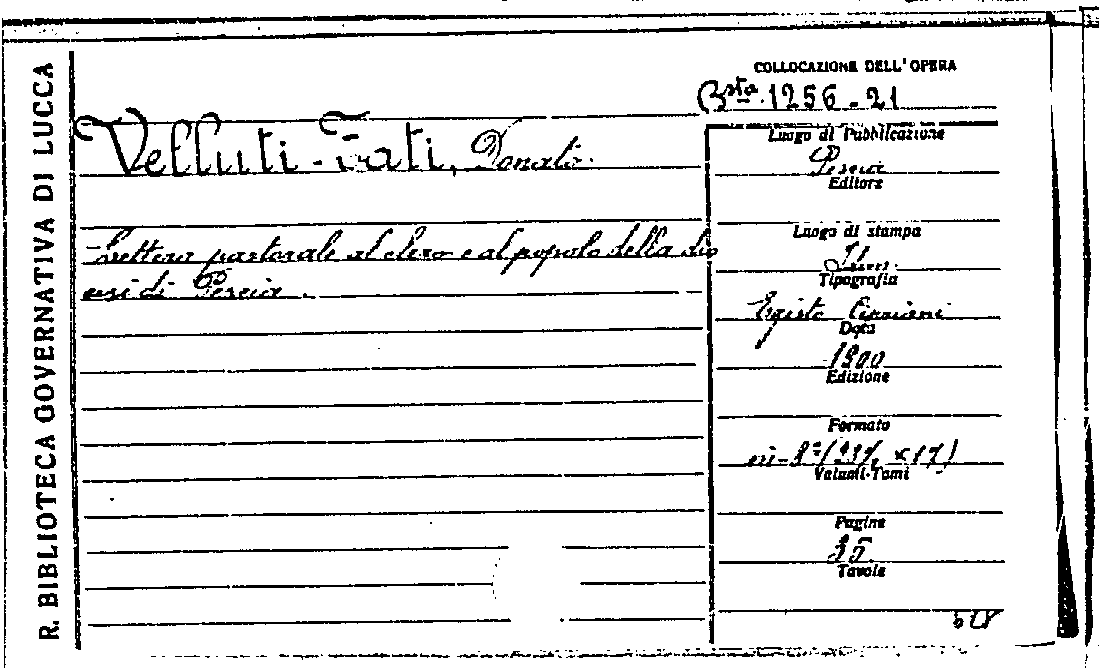 R. BIBLIOTECA GOVERNATIVA DI LUCCA
COLLOCAZIONE DELL'OPERA
Bsta. 1256-21
Velluti-Zati, Donato.
Luogo di Pubblicazione
Pescia
Editore
Lettera pastorale al clero e al popolo della dio
cesi di Pescia.
Luogo di stampa
Tipografia
Egisto Cipriani
Data
1900
Edizione
Formato
in-8°
× 17)
Volumi-Tomi
Pagine
35
Tavole